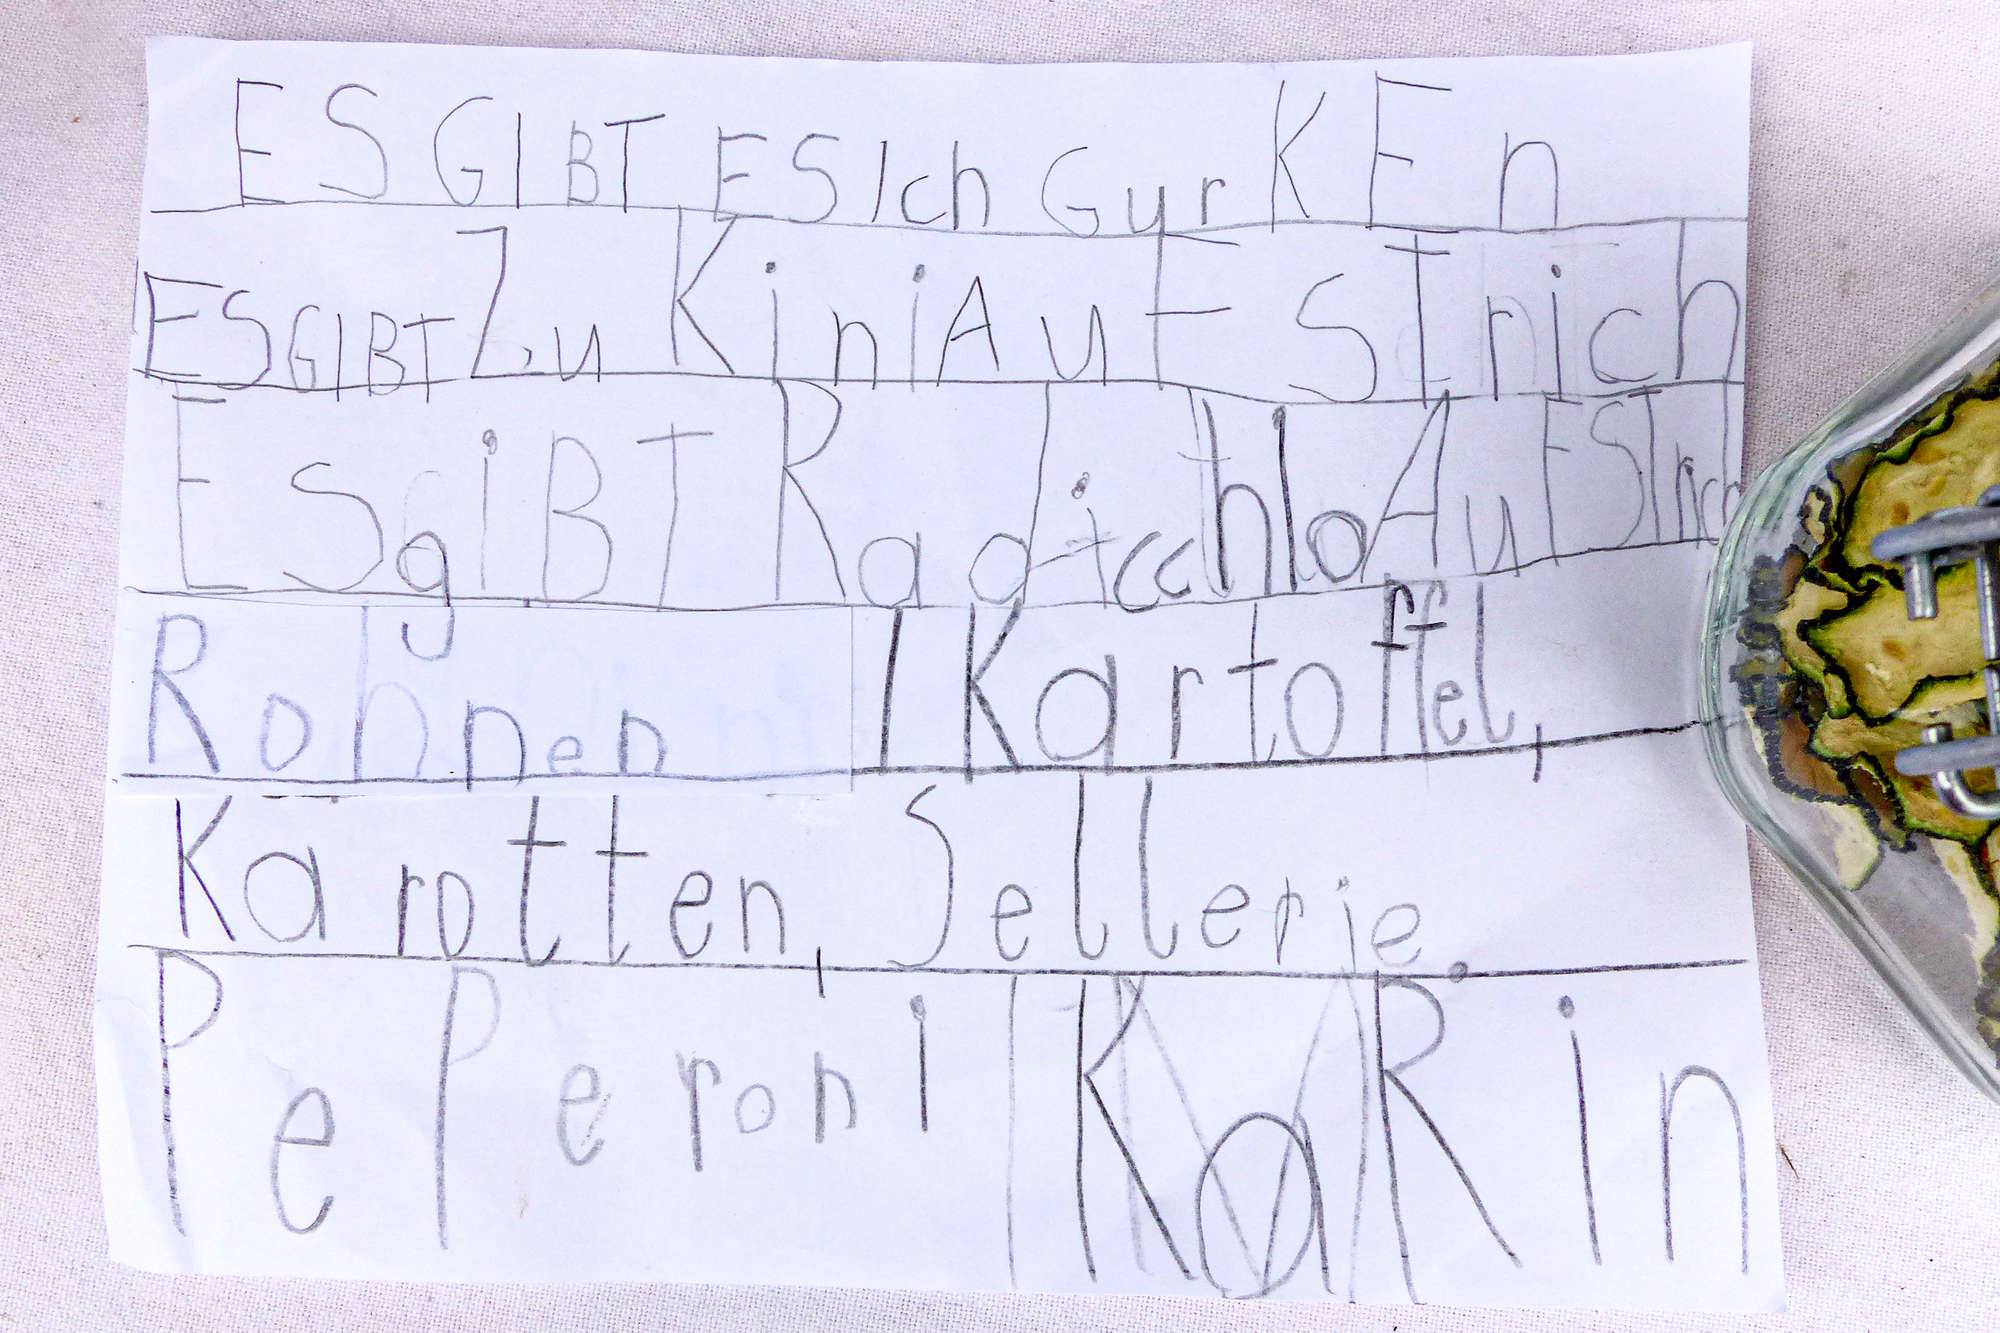 ES GIBT ESIch GurKEn
ES GIBT ZuKiniAuFSTrich
ES giBT RadicchIoAuFSTrich
Rohnen 1 Kartoffel,
Karotten, Sellerie.
PePeroni KaRin